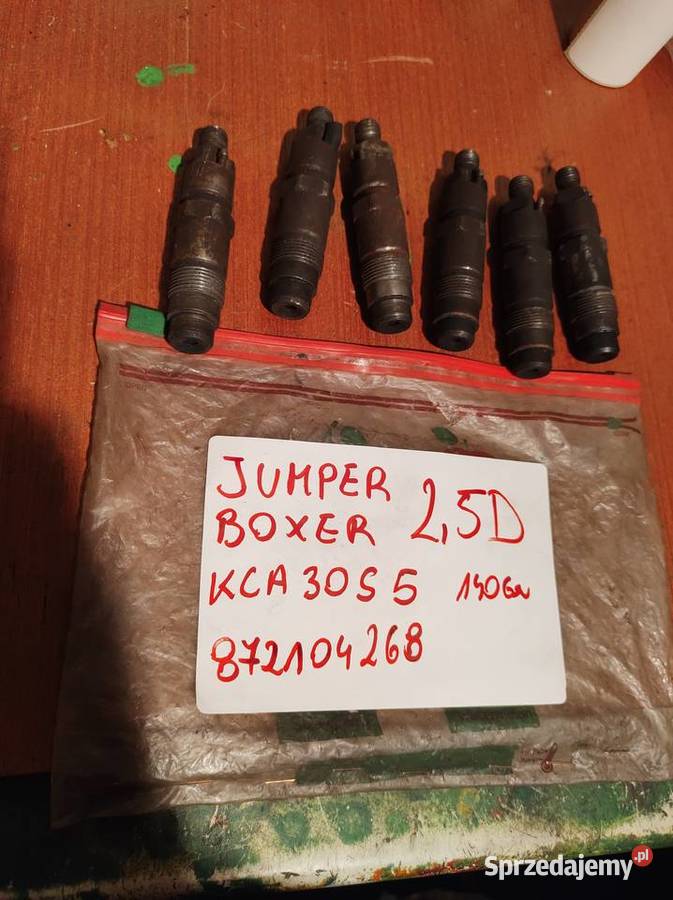 JUMPER
BOXER 2,5D
KCA30S5
872104268
Sprzedajemy.pl